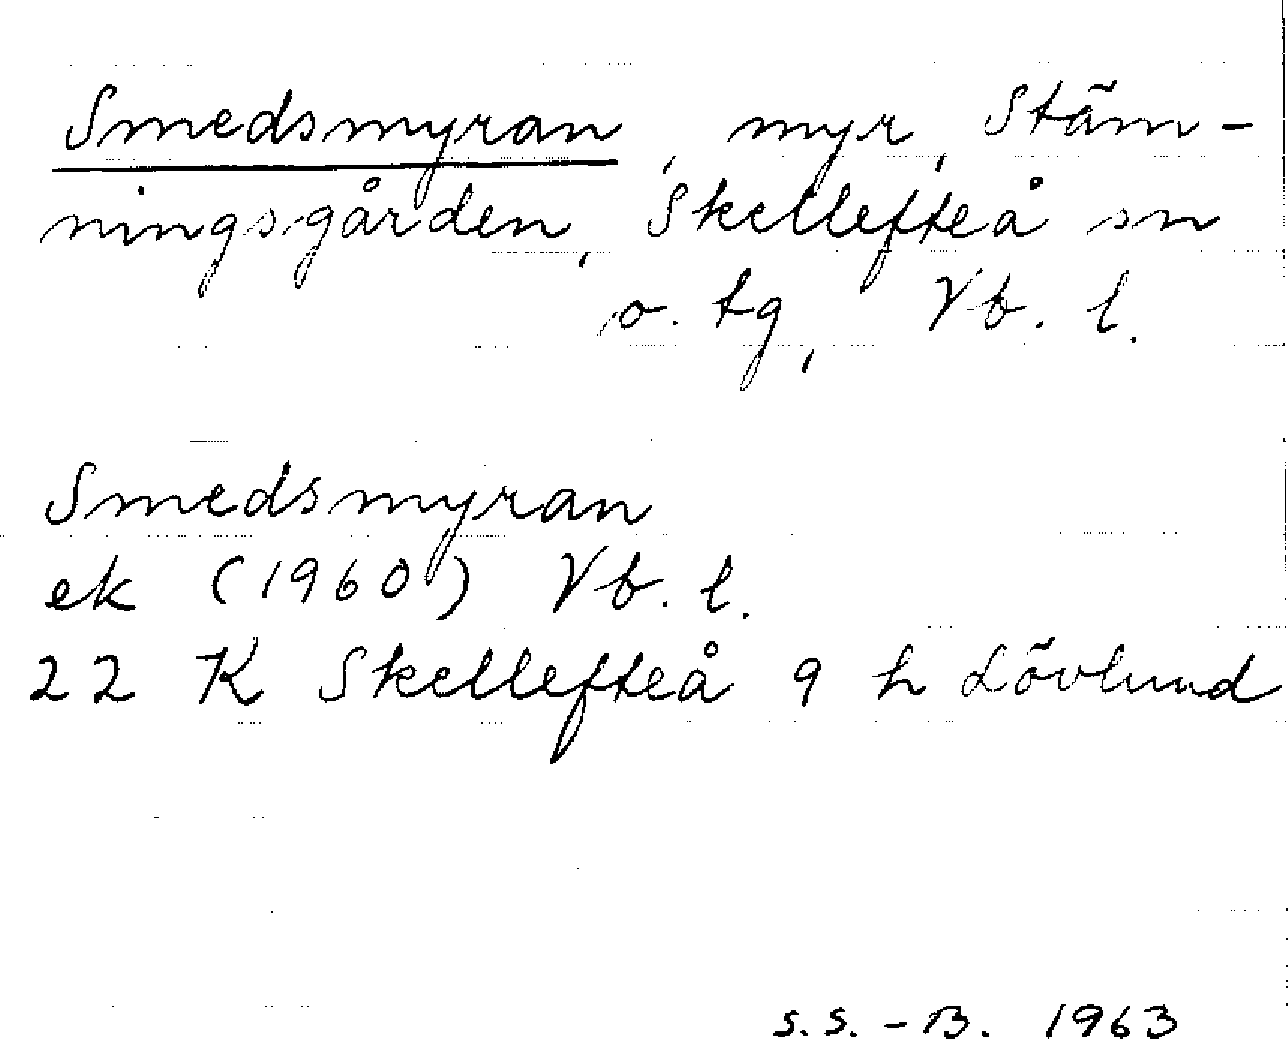 Smedsmyran, myr, Stäm-
ningsgården, Skellefteå sn
o. tg, Vb. l.
Smedsmyran
ek (1960) Vb. l.
22 K Skellefteå 9 h Lövlund
S.S.-B. 1963